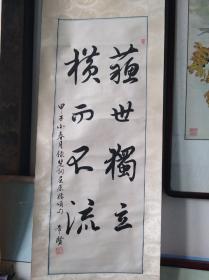 蘓世獨立
橫而不流
甲子小春月錄楚詞屈原橘頌句